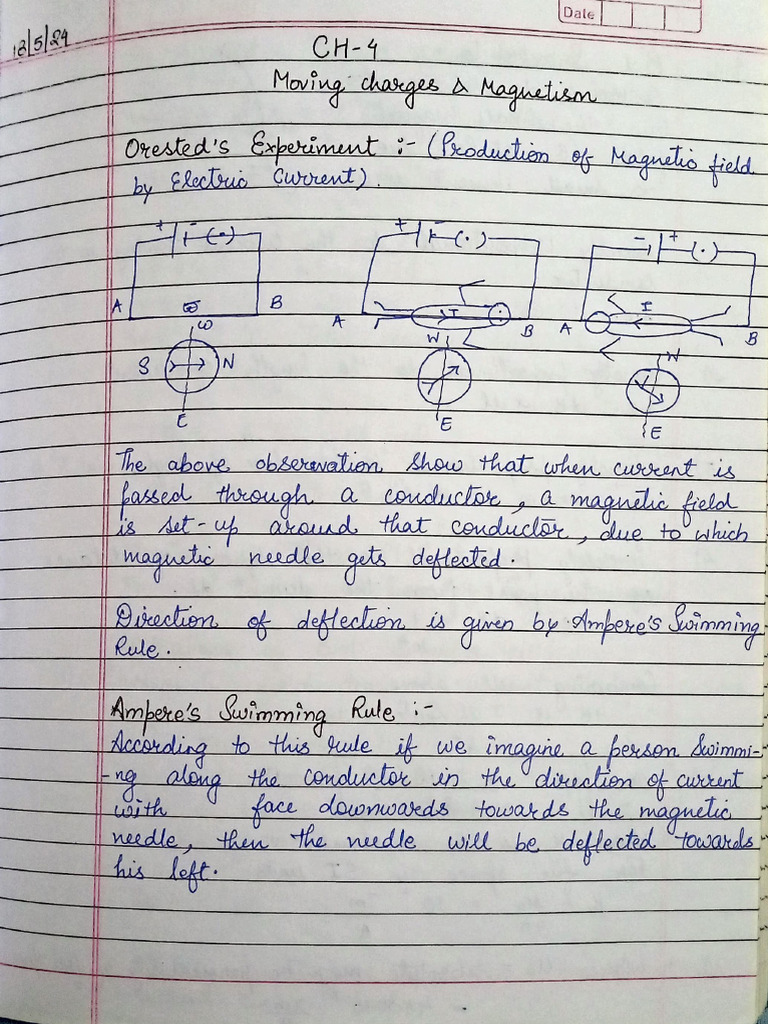 Date
13/5/24
CH-4
Moving charges & Magnetism
Orested's Experiment :- (Production of Magnetic field
by Electric Current).
+ - (·)
+ - (·)
- + (·)
A B
A I B
A I B
W
S N
E
W
E
W
E
The above observation show that when current is
passed through a conductor, a magnetic field
is set-up around that conductor, due to which
magnetic needle gets deflected.
Direction of deflection is given by Ampere's Swimming
Rule.
Ampere's Swimming Rule :-
According to this rule if we imagine a person Swimmi-
-ng along the conductor in the direction of current
with face downwards towards the magnetic
needle, then the needle will be deflected towards
his left.